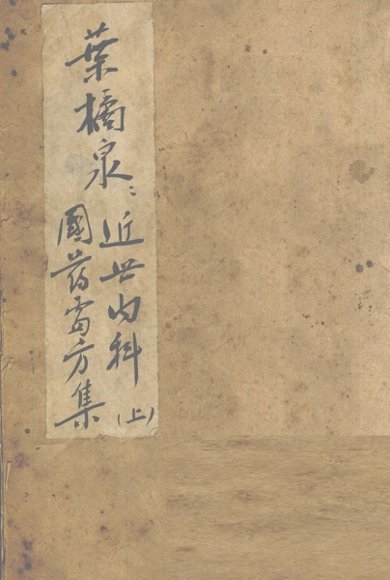 葉橘泉：
近世内科(上)
國药處方集